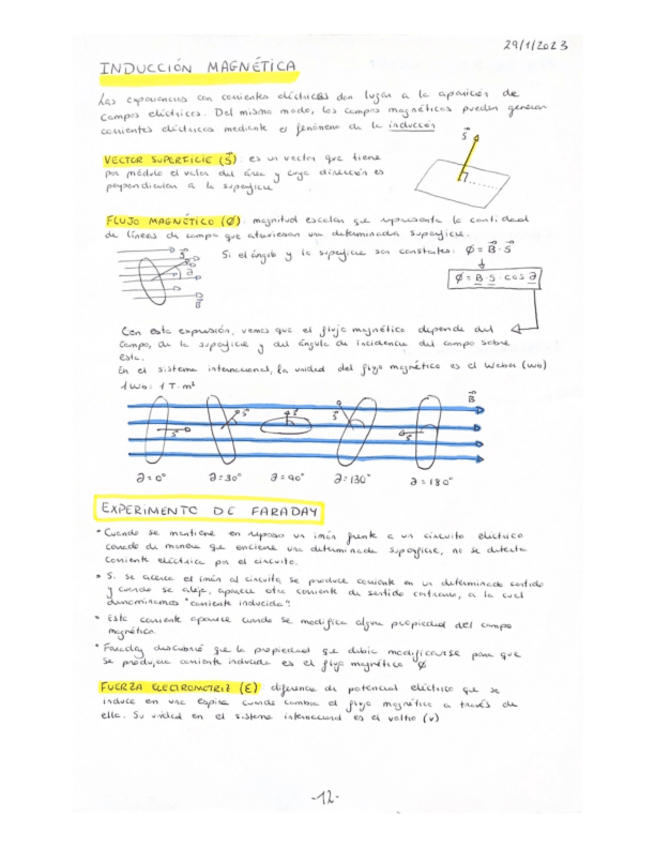 29/1/2023
INDUCCIÓN MAGNÉTICA
Las experiencias con corrientes eléctricas dan lugar a la aparición de
campos eléctricos. Del mismo modo, los campos magnéticos pueden generar
corrientes eléctricas mediante el fenómeno de la inducción
VECTOR SUPERFICIE (S): es un vector que tiene
por módulo el valor del área y cuya dirección es
perpendicular a la superficie
S
FLUJO MAGNÉTICO (Ø): magnitud escalar que representa la cantidad
de líneas de campo que atraviesan una determinada superficie.
Si el ángulo y la superficie son constantes: Ø = B · S
Ø = B · S · cos ∂
S
∂
B
Con esta expresión, vemos que el flujo magnético depende del
campo, de la superficie y del ángulo de incidencia del campo sobre
esta.
En el sistema internacional, la unidad del flujo magnético es el Weber (Wb)
1 Wb = 1 T · m²
B
S S S S S
∂ = 0° ∂ = 30° ∂ = 90° ∂ = 130° ∂ = 180°
EXPERIMENTO DE FARADAY
• Cuando se mantiene en reposo un imán frente a un circuito eléctrico
cerrado de manera que encierre una determinada superficie, no se detecta
corriente eléctrica por el circuito.
• Si se acerca el imán al circuito, se produce corriente en un determinado sentido
y cuando se aleja, aparece otra corriente de sentido contrario, a la cual
denominamos "corriente inducida".
• Esta corriente aparece cuando se modifica alguna propiedad del campo
magnético.
• Faraday descubrió que la propiedad que debía modificarse para que
se produjera corriente inducida es el flujo magnético Ø
FUERZA ELECTROMOTRIZ (Ɛ) diferencia de potencial eléctrico que se
induce en una espira cuando cambia el flujo magnético a través de
ella. Su unidad en el sistema internacional es el voltio (v)
-12-